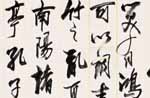 笑有鴻
可以調素
竹之亂耳
南陽諸
亭孔子